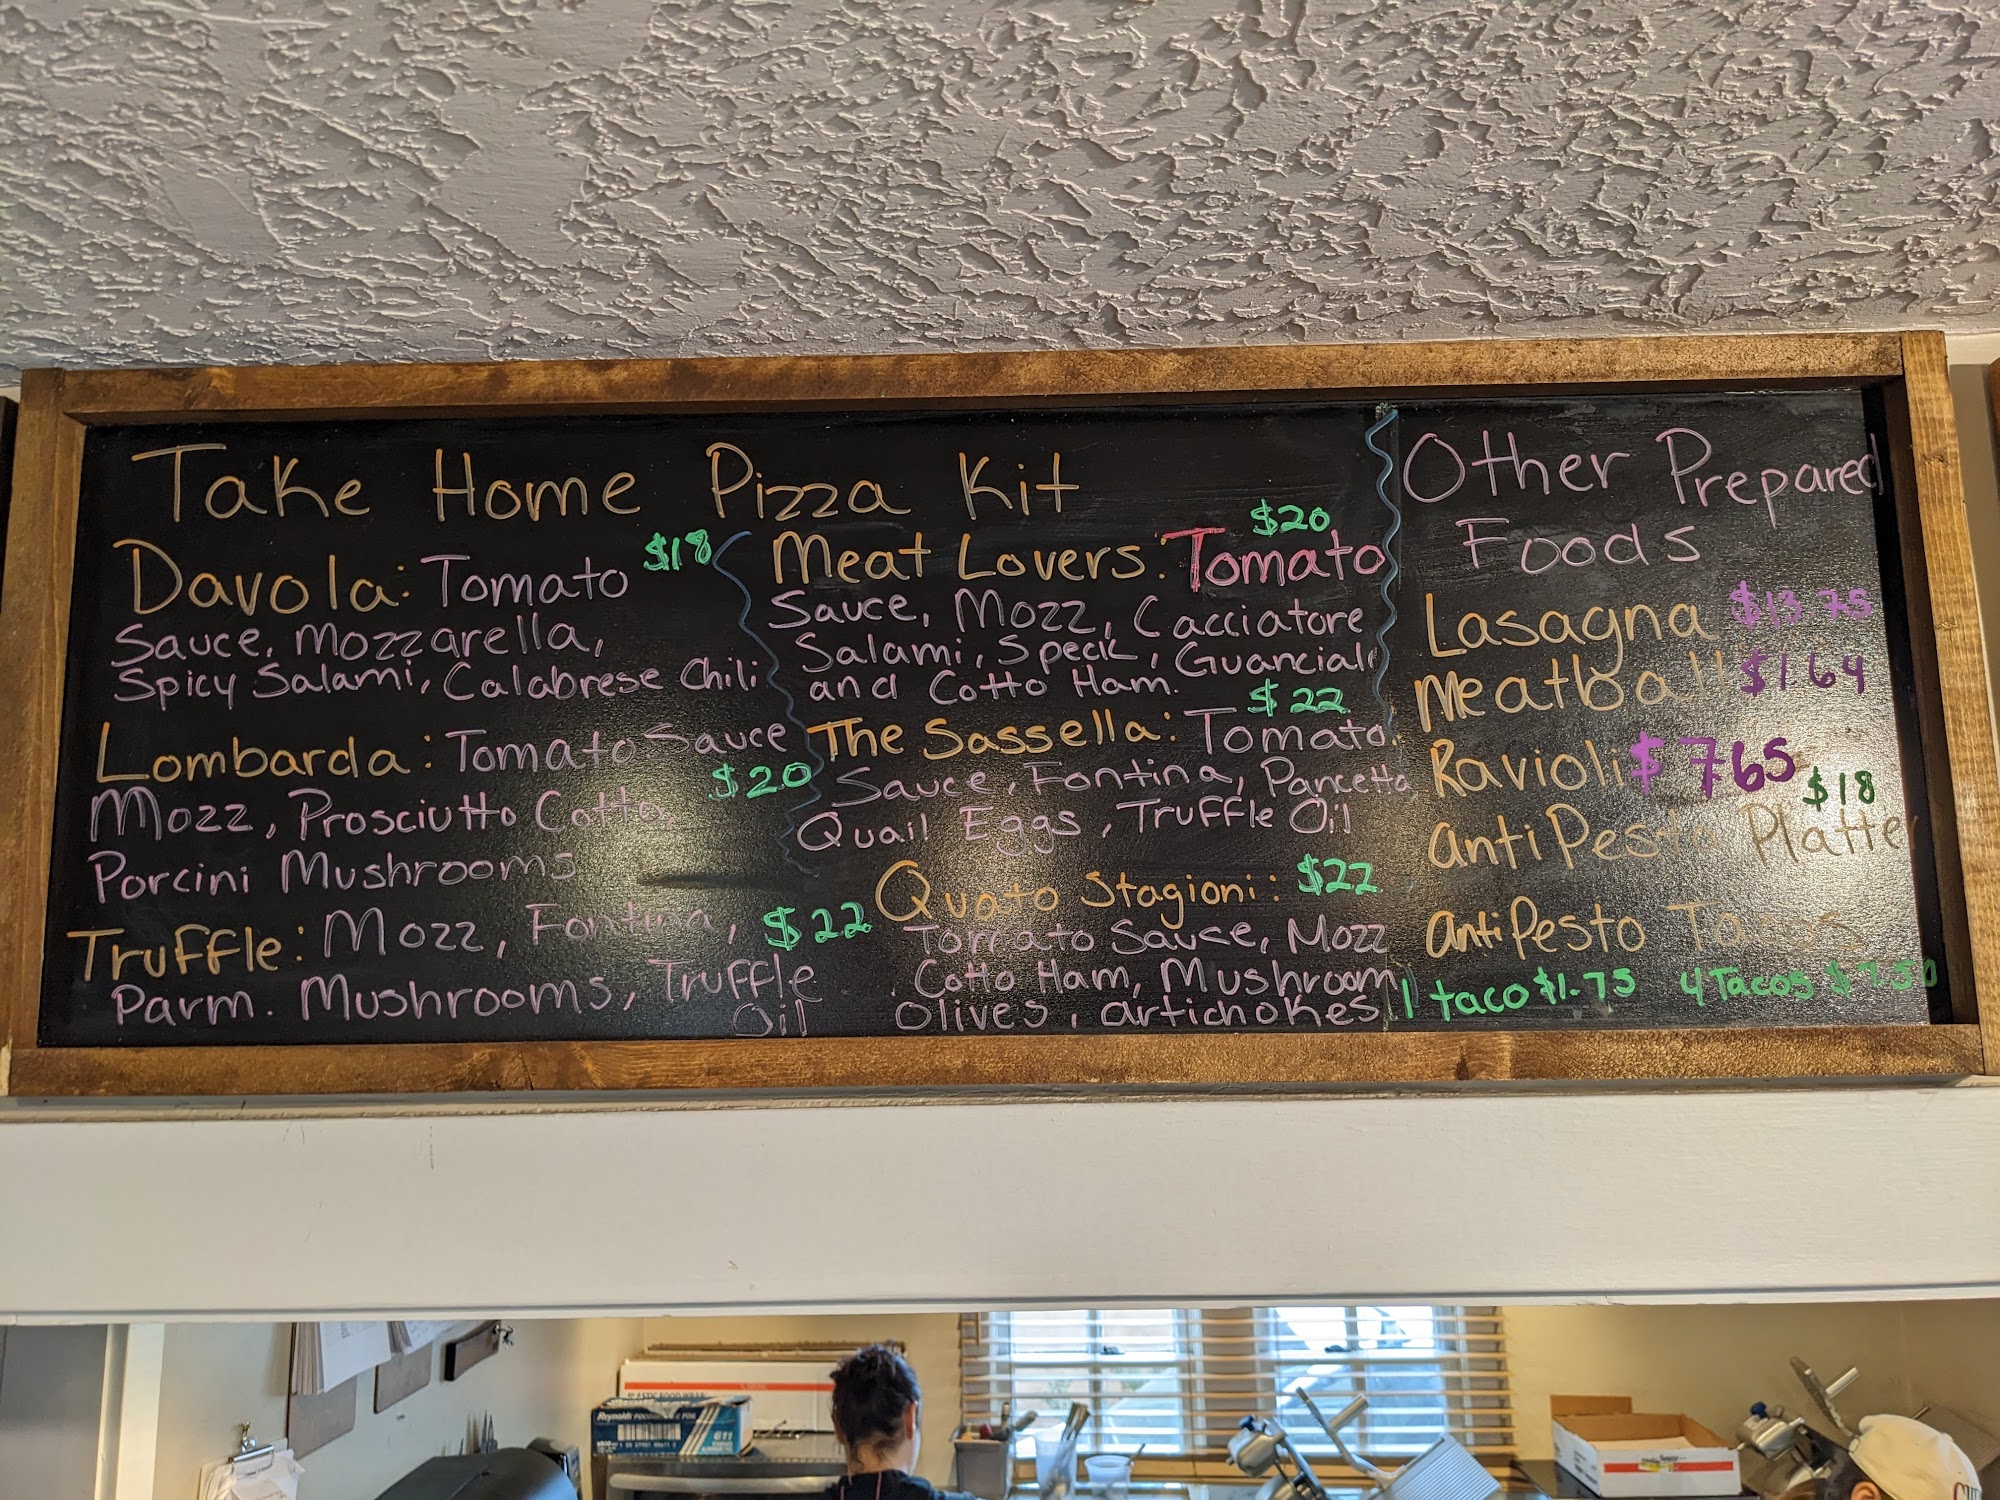 Take Home Pizza Kit
Davola: Tomato $18
Sauce, Mozzarella,
Spicy Salami, Calabrese Chili
Lombarda: Tomato Sauce
$20
Mozz, Prosciutto Cotto,
Porcini Mushrooms
Truffle: Mozz, Fontina, $22
Parm. Mushrooms, Truffle
Oil
$20
Meat Lovers: Tomato
Sauce, Mozz, Cacciatore
Salami, Speck, Guanciale
and Cotto Ham.
$22
The Sassella: Tomato
Sauce, Fontina, Pancetta
Quail Eggs, Truffle Oil
Quato Stagioni: $22
Tomato Sauce, Mozz
Cotto Ham, Mushroom,
Olives, artichokes
Other Prepared
Foods
Lasagna $13.75
Meatball $1.64
Ravioli $7.65
$18
antiPesto Platter
antiPesto Tacos
1 taco $1.75 4 Tacos $7.50
Reynolds
611